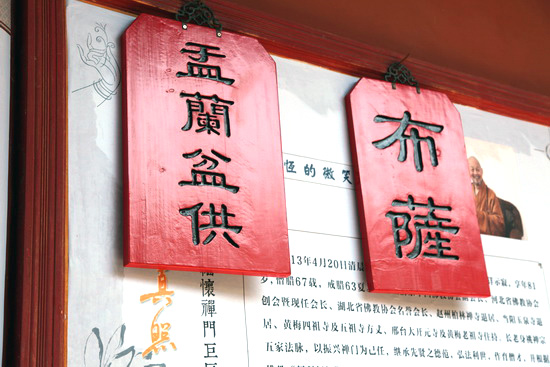 盂蘭盆供
布薩
恒的微笑
13年4月20日清晨
示寂，享年81
岁，僧腊67载，戒腊63夏
河北省佛教协会
创会暨现任会长、湖北省佛教协会名誉会长、赵州柏林禅寺退居、当阳玉泉寺退
居、黄梅四祖寺及五祖寺方丈、邢台大开元寺及黄梅老祖寺住持。长老身挑禅宗
五家法脉，以振兴禅门为己任，继承先贤之德范，弘法利世，作育僧才，并根据
懷禪門巨